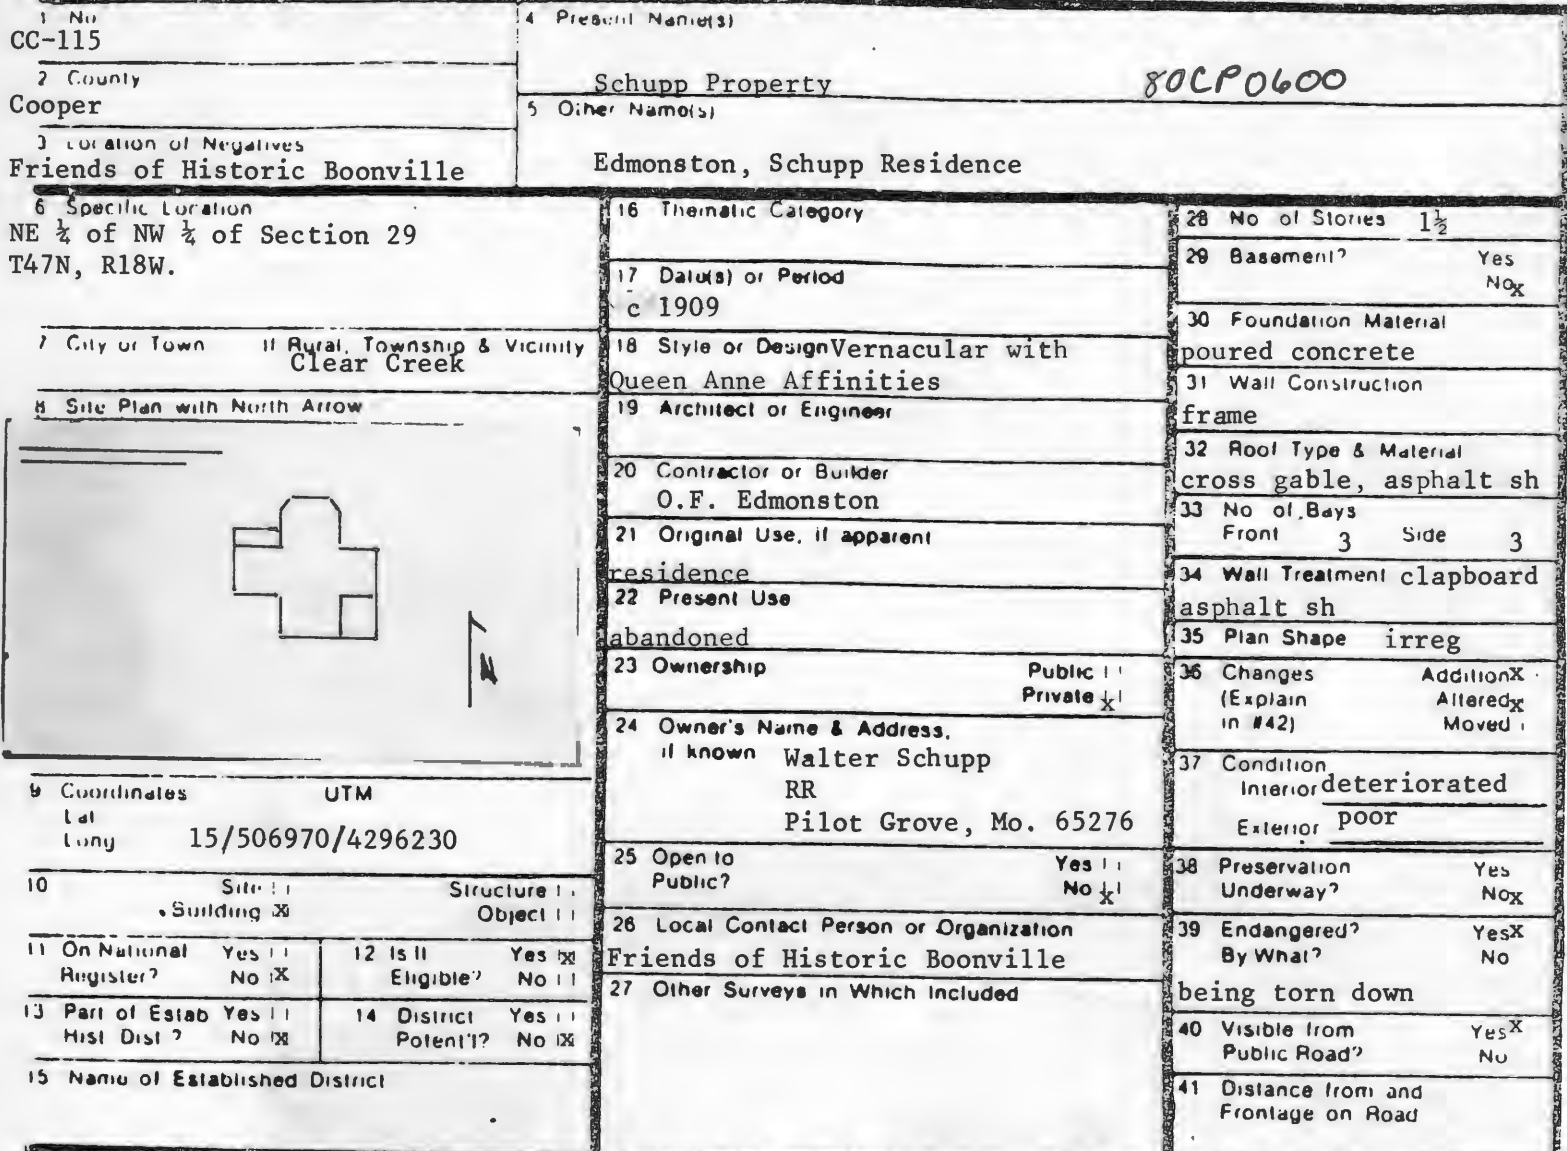 1 No
CC-115
2 County
Cooper
3 Location of Negatives
Friends of Historic Boonville
4 Present Name(s)
Schupp Property
80CP0600
5 Other Name(s)
Edmonston, Schupp Residence
6 Specific Location
NE ¼ of NW ¼ of Section 29
T47N, R18W.
7 City or Town If Rural, Township & Vicinity
Clear Creek
8 Site Plan with North Arrow
N
9 Coordinates UTM
Lat
Long 15/506970/4296230
10 Site Structure
Building X Object
11 On National Yes
Register? No X
12 Is It Yes X
Eligible? No
13 Part of Estab Yes
Hist Dist ? No X
14 District Yes
Potent'l? No X
15 Name of Established District
16 Thematic Category
17 Date(s) or Period
c 1909
18 Style or Design Vernacular with
Queen Anne Affinities
19 Architect or Engineer
20 Contractor or Builder
O.F. Edmonston
21 Original Use, if apparent
residence
22 Present Use
abandoned
23 Ownership Public
Private x
24 Owner's Name & Address,
if known Walter Schupp
RR
Pilot Grove, Mo. 65276
25 Open to Yes
Public? No x
26 Local Contact Person or Organization
Friends of Historic Boonville
27 Other Surveys in Which Included
28 No of Stories 1½
29 Basement? Yes
No x
30 Foundation Material
poured concrete
31 Wall Construction
frame
32 Roof Type & Material
cross gable, asphalt sh
33 No of Bays
Front 3 Side 3
34 Wall Treatment clapboard
asphalt sh
35 Plan Shape irreg
36 Changes Addition X
(Explain Altered x
in #42) Moved
37 Condition
Interior deteriorated
Exterior poor
38 Preservation Yes
Underway? No x
39 Endangered? Yes X
By What? No
being torn down
40 Visible from Yes X
Public Road? No
41 Distance from and
Frontage on Road